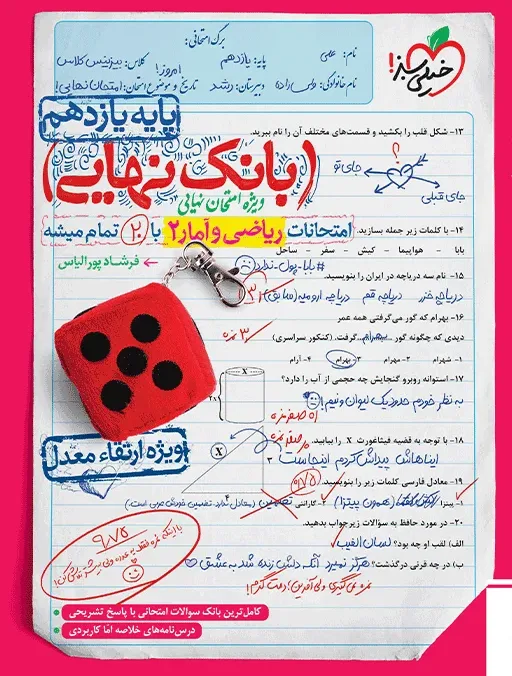 خیلی سبز!
برگ امتحانی:
نام: علی
پایه: یازدهم
کلاس: بیزینس کلاس
نام خانوادگی:
دبیرستان: رشد
تاریخ و موضوع امتحان: امروز! امتحان نهایی!
پایه یازدهم
۱۳- شکل قلب را بکشید و قسمت‌های مختلف آن را نام ببرید.
؟
جای تو
جای قبلی
(بانک نهایی)
ویژه امتحان نهایی
امتحانات ریاضی و آمار۲ با ۲۰ تمام میشه
فرشاد پورالیاس
۱۴- با کلمات زیر جمله بسازید.
بابا - هواپیما - کیش - سفر - ساحل
#بابا-پول-ندارد
۱۵- نام سه دریاچه در ایران را بنویسید.
دریاچه خزر دریاچه قم دریاچه ارومیه (سابق)
۱۶- بهرام که گور می‌گرفتی همه عمر
دیدی که چگونه گور بهرام گرفت. (کنکور سراسری)
۱- شهرام ۲- مهرام ۳- بهرام ۴- آرام
۳ نمره
۱۷- استوانه روبرو گنجایش چه حجمی از آب را دارد؟
به نظر خودم حدود یک لیوان و نیم!
X
۱۸- با توجه به قضیه فیثاغورث X را بیابید.
ایناهاش پیداش کردم اینجاست
X
۳
۴
ویژه ارتقاء معدل
۱۹- معادل فارسی کلمات زیر را بنویسید.
۱- پیتزا (همون پیتزا) ۲- گارانتی تضمین
۲۰- در مورد حافظ به سؤالات زیر جواب بدهید.
الف) لقب او چه بود؟ لسان الغیب
ب) در چه قرنی درگذشت؟ هرگز نمیرد آنکه دلش زنده شد به عشق
نمره نمی‌گیری ولی آفرین! دمت گرم!
۹/۷۵
کامل‌ترین بانک سوالات امتحانی با پاسخ تشریحی
درس‌نامه‌های خلاصه امّا کاربردی